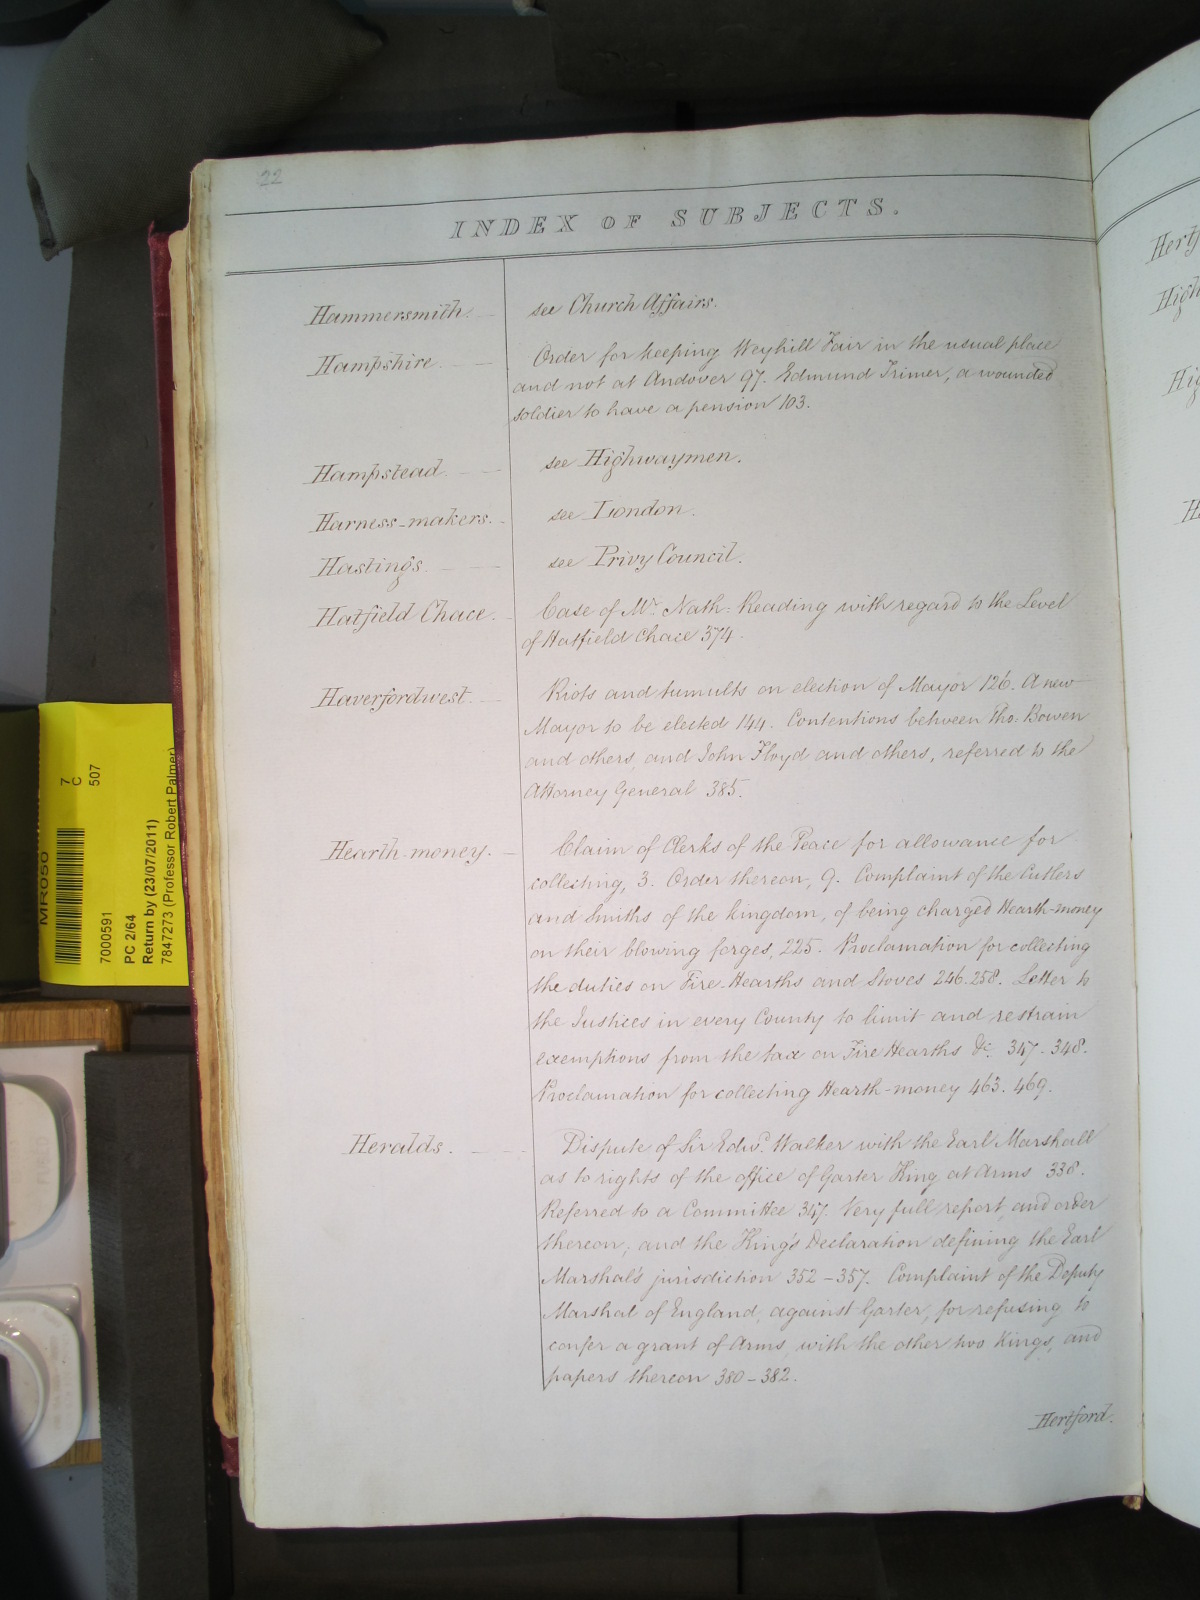 22
INDEX OF SUBJECTS.
Hammersmith. see Church Affairs.
Hampshire. Order for keeping Weyhill Fair in the usual place
and not at Andover 97. Edmund Trimer, a wounded
soldier to have a pension 103.
Hampstead see Highwaymen.
Harness-makers. see London.
Hastings see Privy Council.
Hatfield Chace. Case of Mr. Nath: Reading with regard to the Level
of Hatfield Chace 374.
Haverfordwest. Riots and tumults on election of Mayor 126. A new
Mayor to be elected 144. Contentions between Tho: Bowen
and others, and John Floyd and others, referred to the
Attorney General 385.
Hearth-money. Claim of Clerks of the Peace for allowance for
collecting, 3. Order thereon, 9. Complaint of the Cutlers
and Smiths of the kingdom, of being charged Hearth-money
on their blowing forges, 225. Proclamation for collecting
the duties on Fire-Hearths and Stoves 246.258. Letter to
the Justices in every County to limit and restrain
exemptions from the tax on Fire Hearths &c. 347. 348.
Proclamation for collecting Hearth-money 463. 469.
Heralds. Dispute of Sir Edwd. Walker with the Earl Marshall
as to rights of the office of Garter King at Arms 338.
Referred to a Committee 347. Very full report, and order
thereon; and the King's Declaration defining the Earl
Marshal's jurisdiction 352-357. Complaint of the Deputy
Marshal of England, against Garter, for refusing to
confer a grant of Arms, with the other two Kings, and
papers thereon 380-382.
Hertford.
MR050
7
C
507
7000591
PC 2/64
Return by (23/07/2011)
7847273 (Professor Robert Palmer)